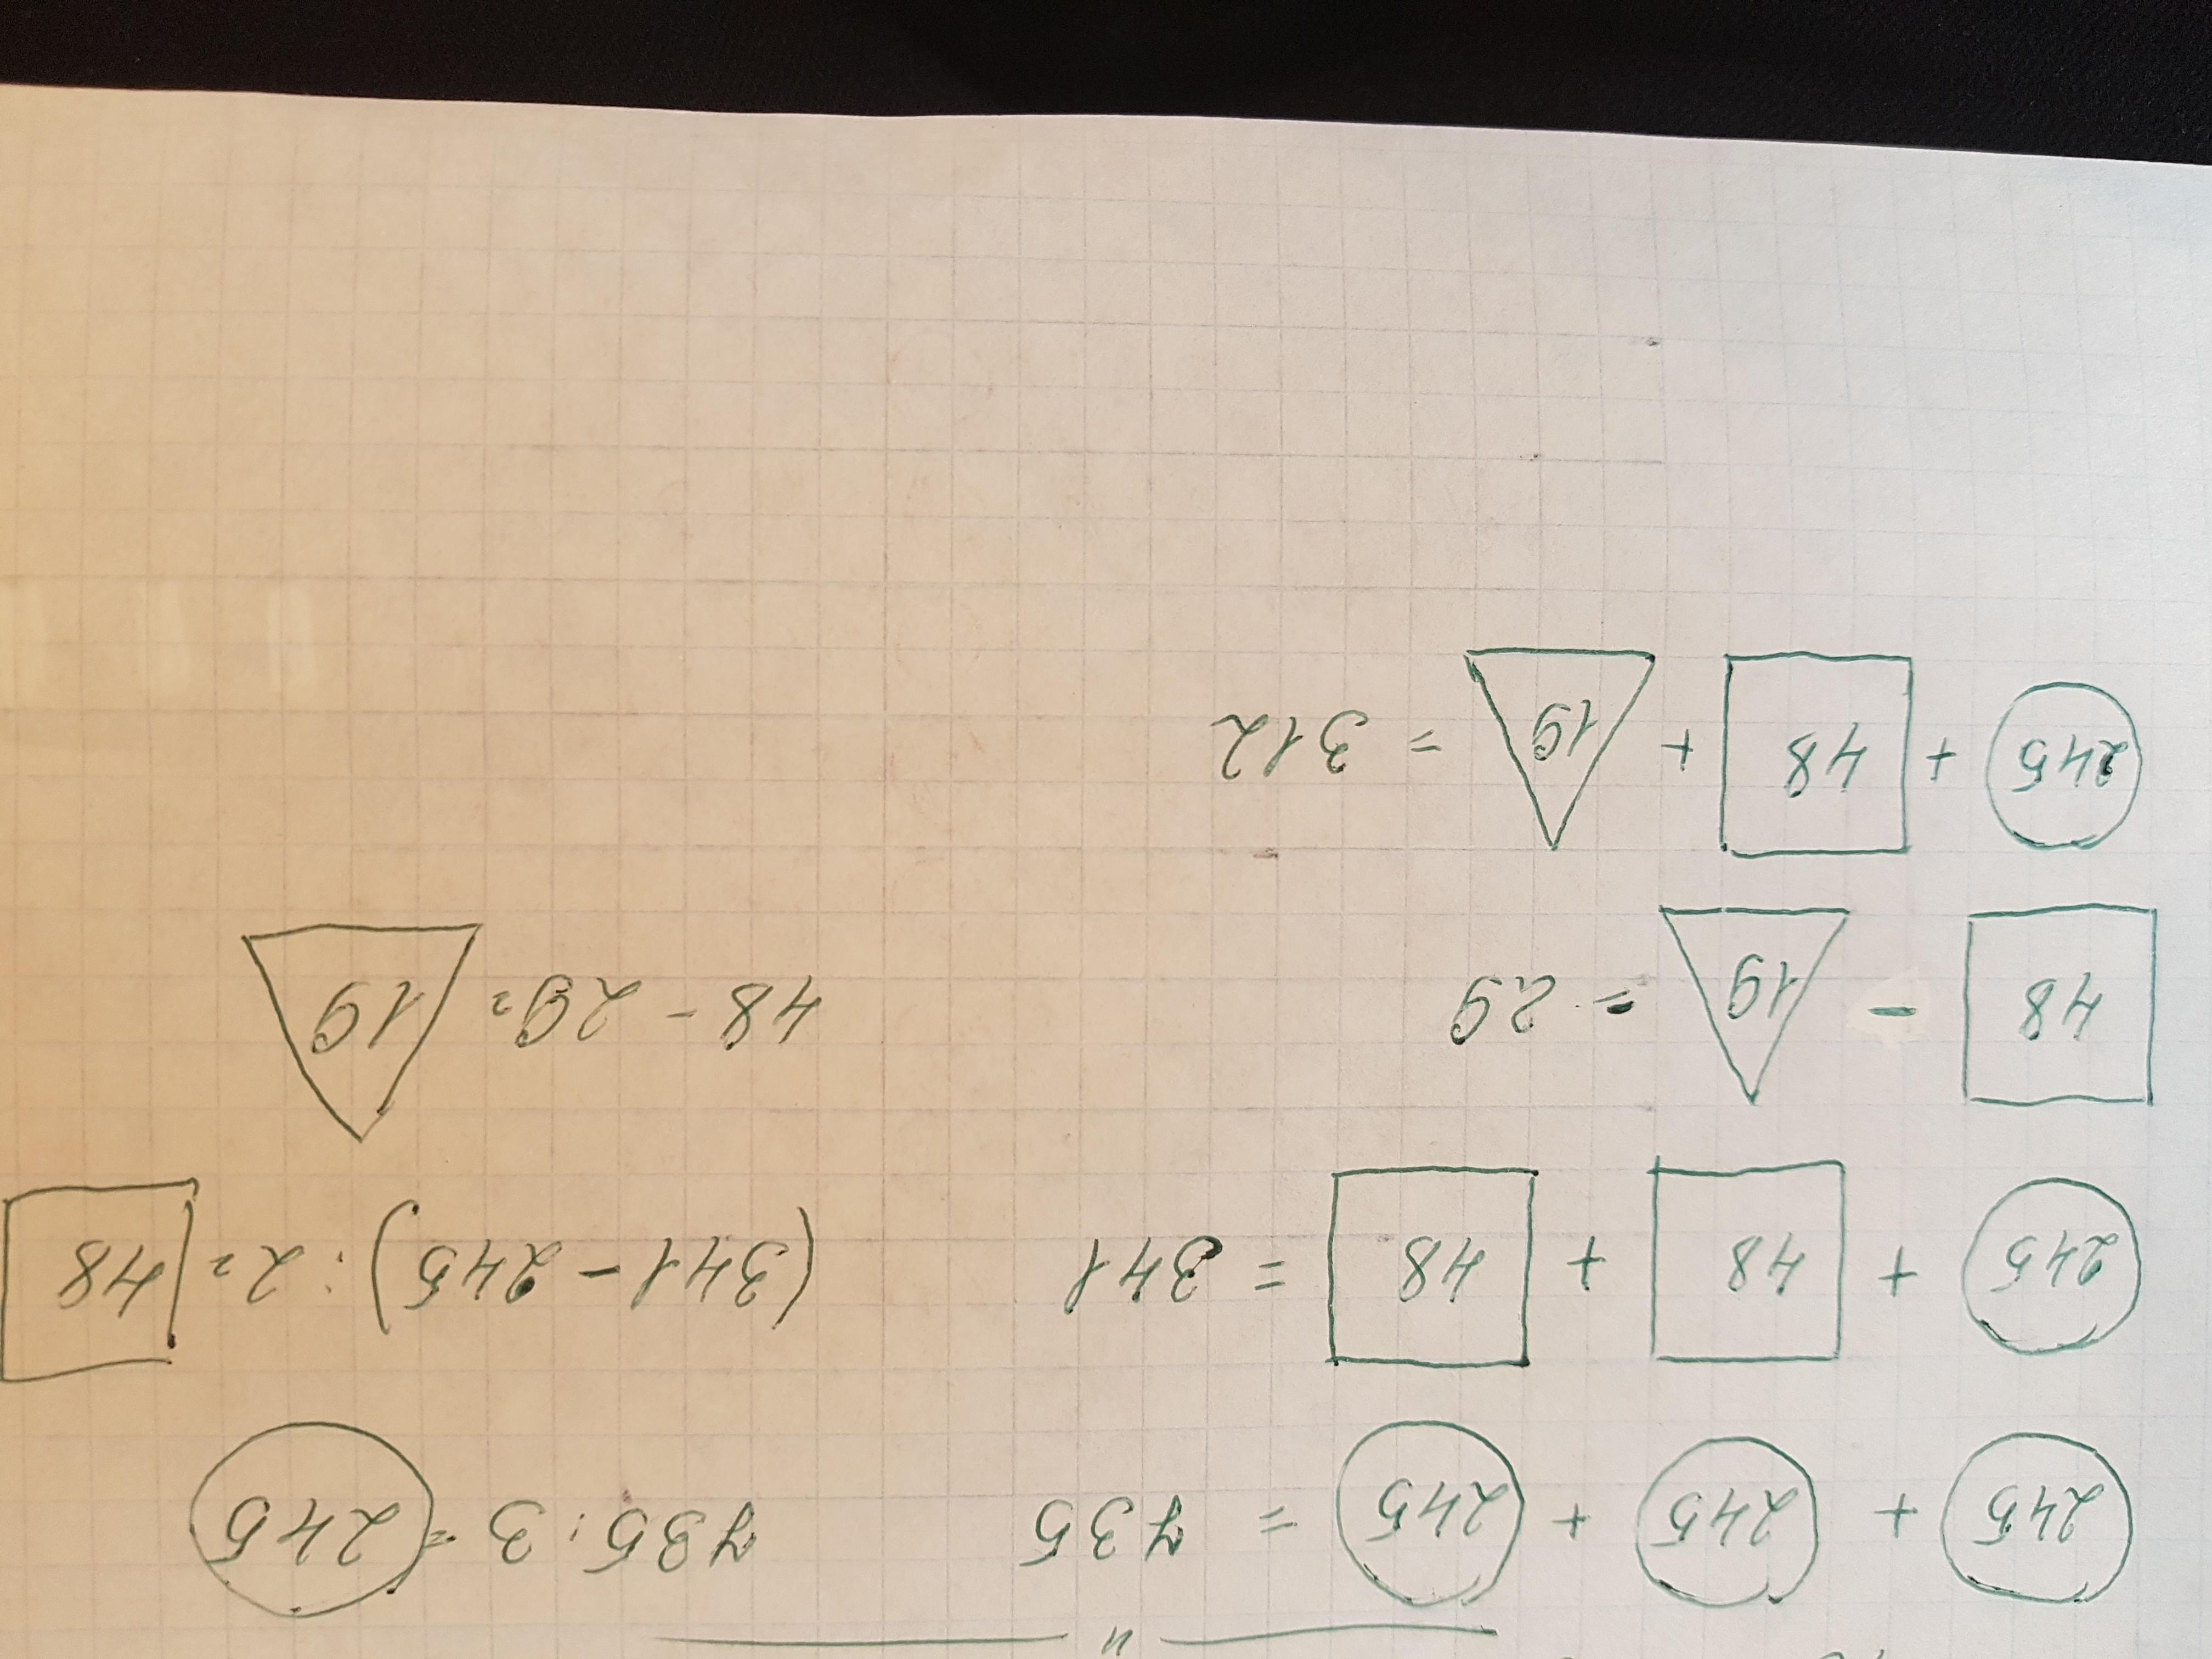 245 + 245 + 245 = 735 735 : 3 = 245
245 + 48 + 48 = 341 (341 - 245) : 2 = 48
48 - 19 = 29 48 - 29 = 19
245 + 48 + 19 = 312